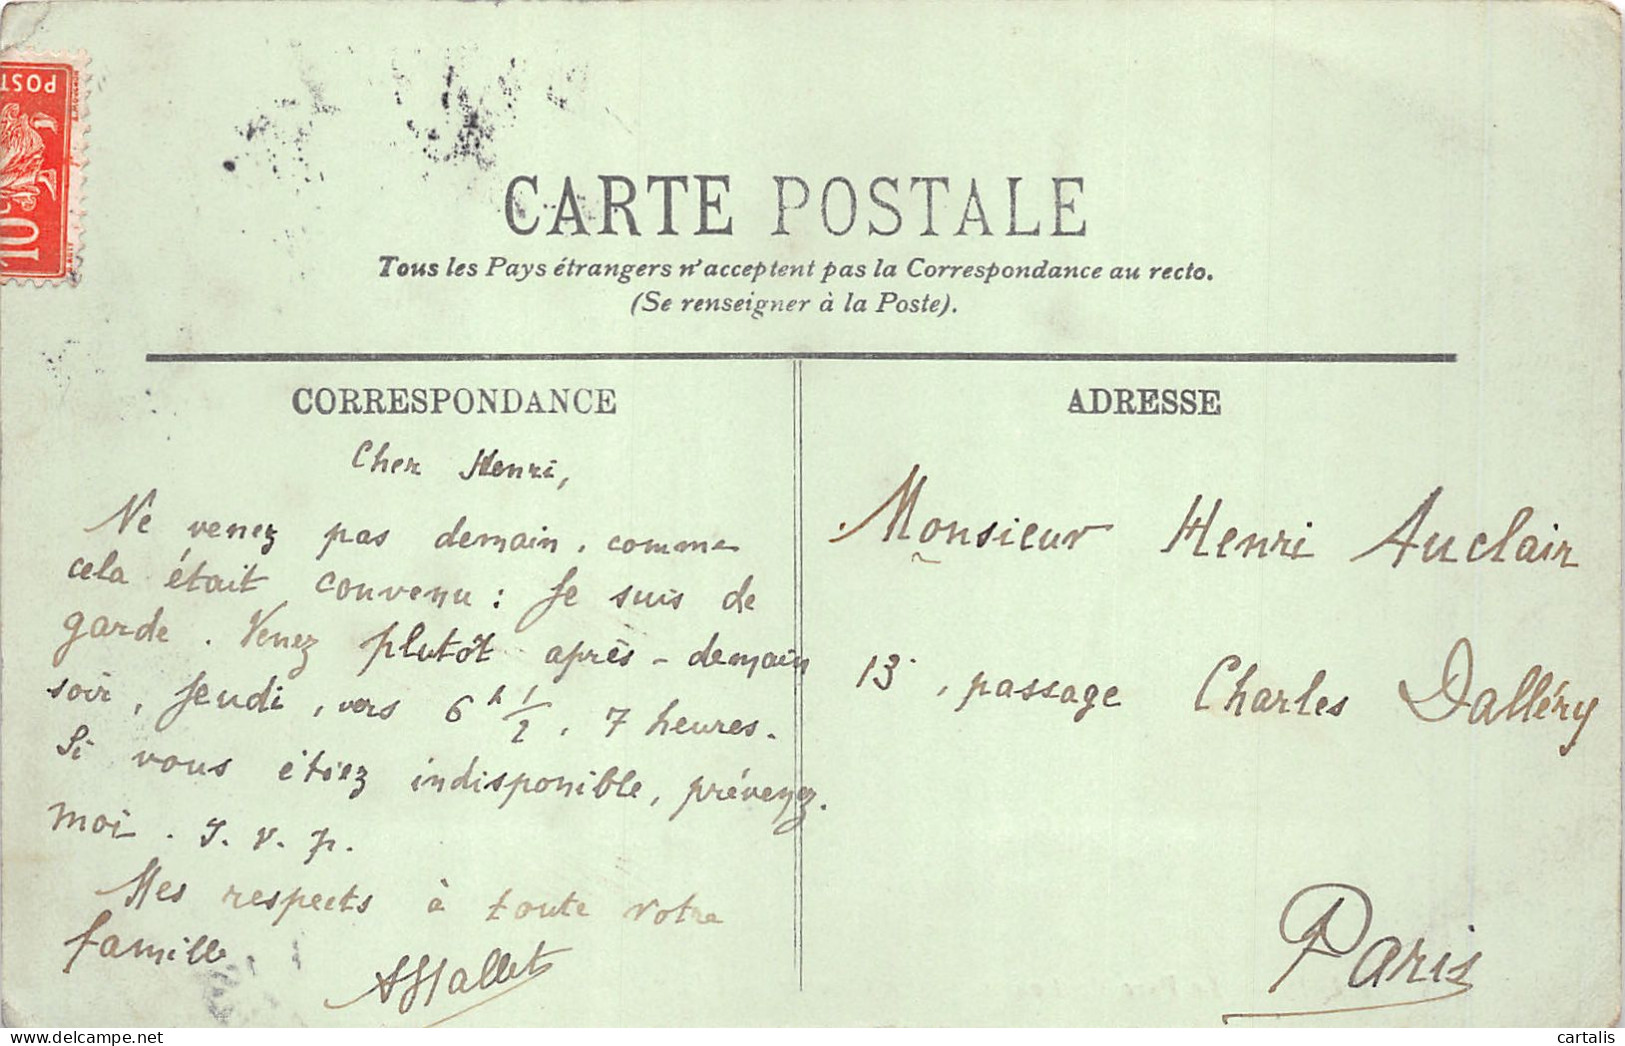 POST
10
CARTE POSTALE
Tous les Pays étrangers n'acceptent pas la Correspondance au recto.
(Se renseigner à la Poste).
CORRESPONDANCE
Cher Henri,
Ne venez pas demain, comme
cela était convenu : je suis de
garde. Venez plutôt après-demain
soir, jeudi, vers 6 h 1/2, 7 heures.
Si vous étiez indisponible, prévenez
moi. S. V. P.
Mes respects à toute votre
famille
ADRESSE
Monsieur Henri Auclair
13, passage Charles Dalléry
Paris
cartalis